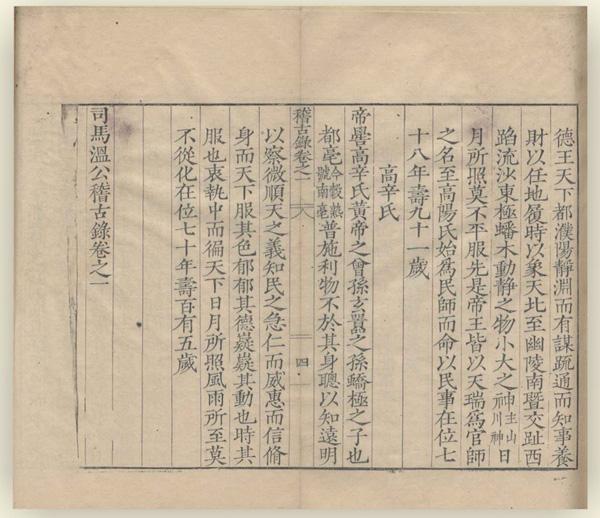 德王天下都濮陽靜淵而有謀疏通而知事養
財以任地履時以象天北至幽陵南暨交趾西
蹈流沙東極蟠木動靜之物小大之神主山川神日
月所照莫不平服先是帝王皆以天瑞爲官師
之名至高陽氏始爲民師而命以民事在位七
十八年壽九十一歲
高辛氏
帝嚳高辛氏黃帝之曾孫玄囂之孫蟜極之子也
都亳今穀熟號南亳普施利物不於其身聰以知遠明
稽古錄卷之一
四
以察微順天之義知民之急仁而威惠而信脩
身而天下服其色郁郁其德嶷嶷其動也時其
服也衷執中而徧天下日月所照風雨所至莫
不從化在位七十年壽百有五歲
司馬溫公稽古錄卷之一